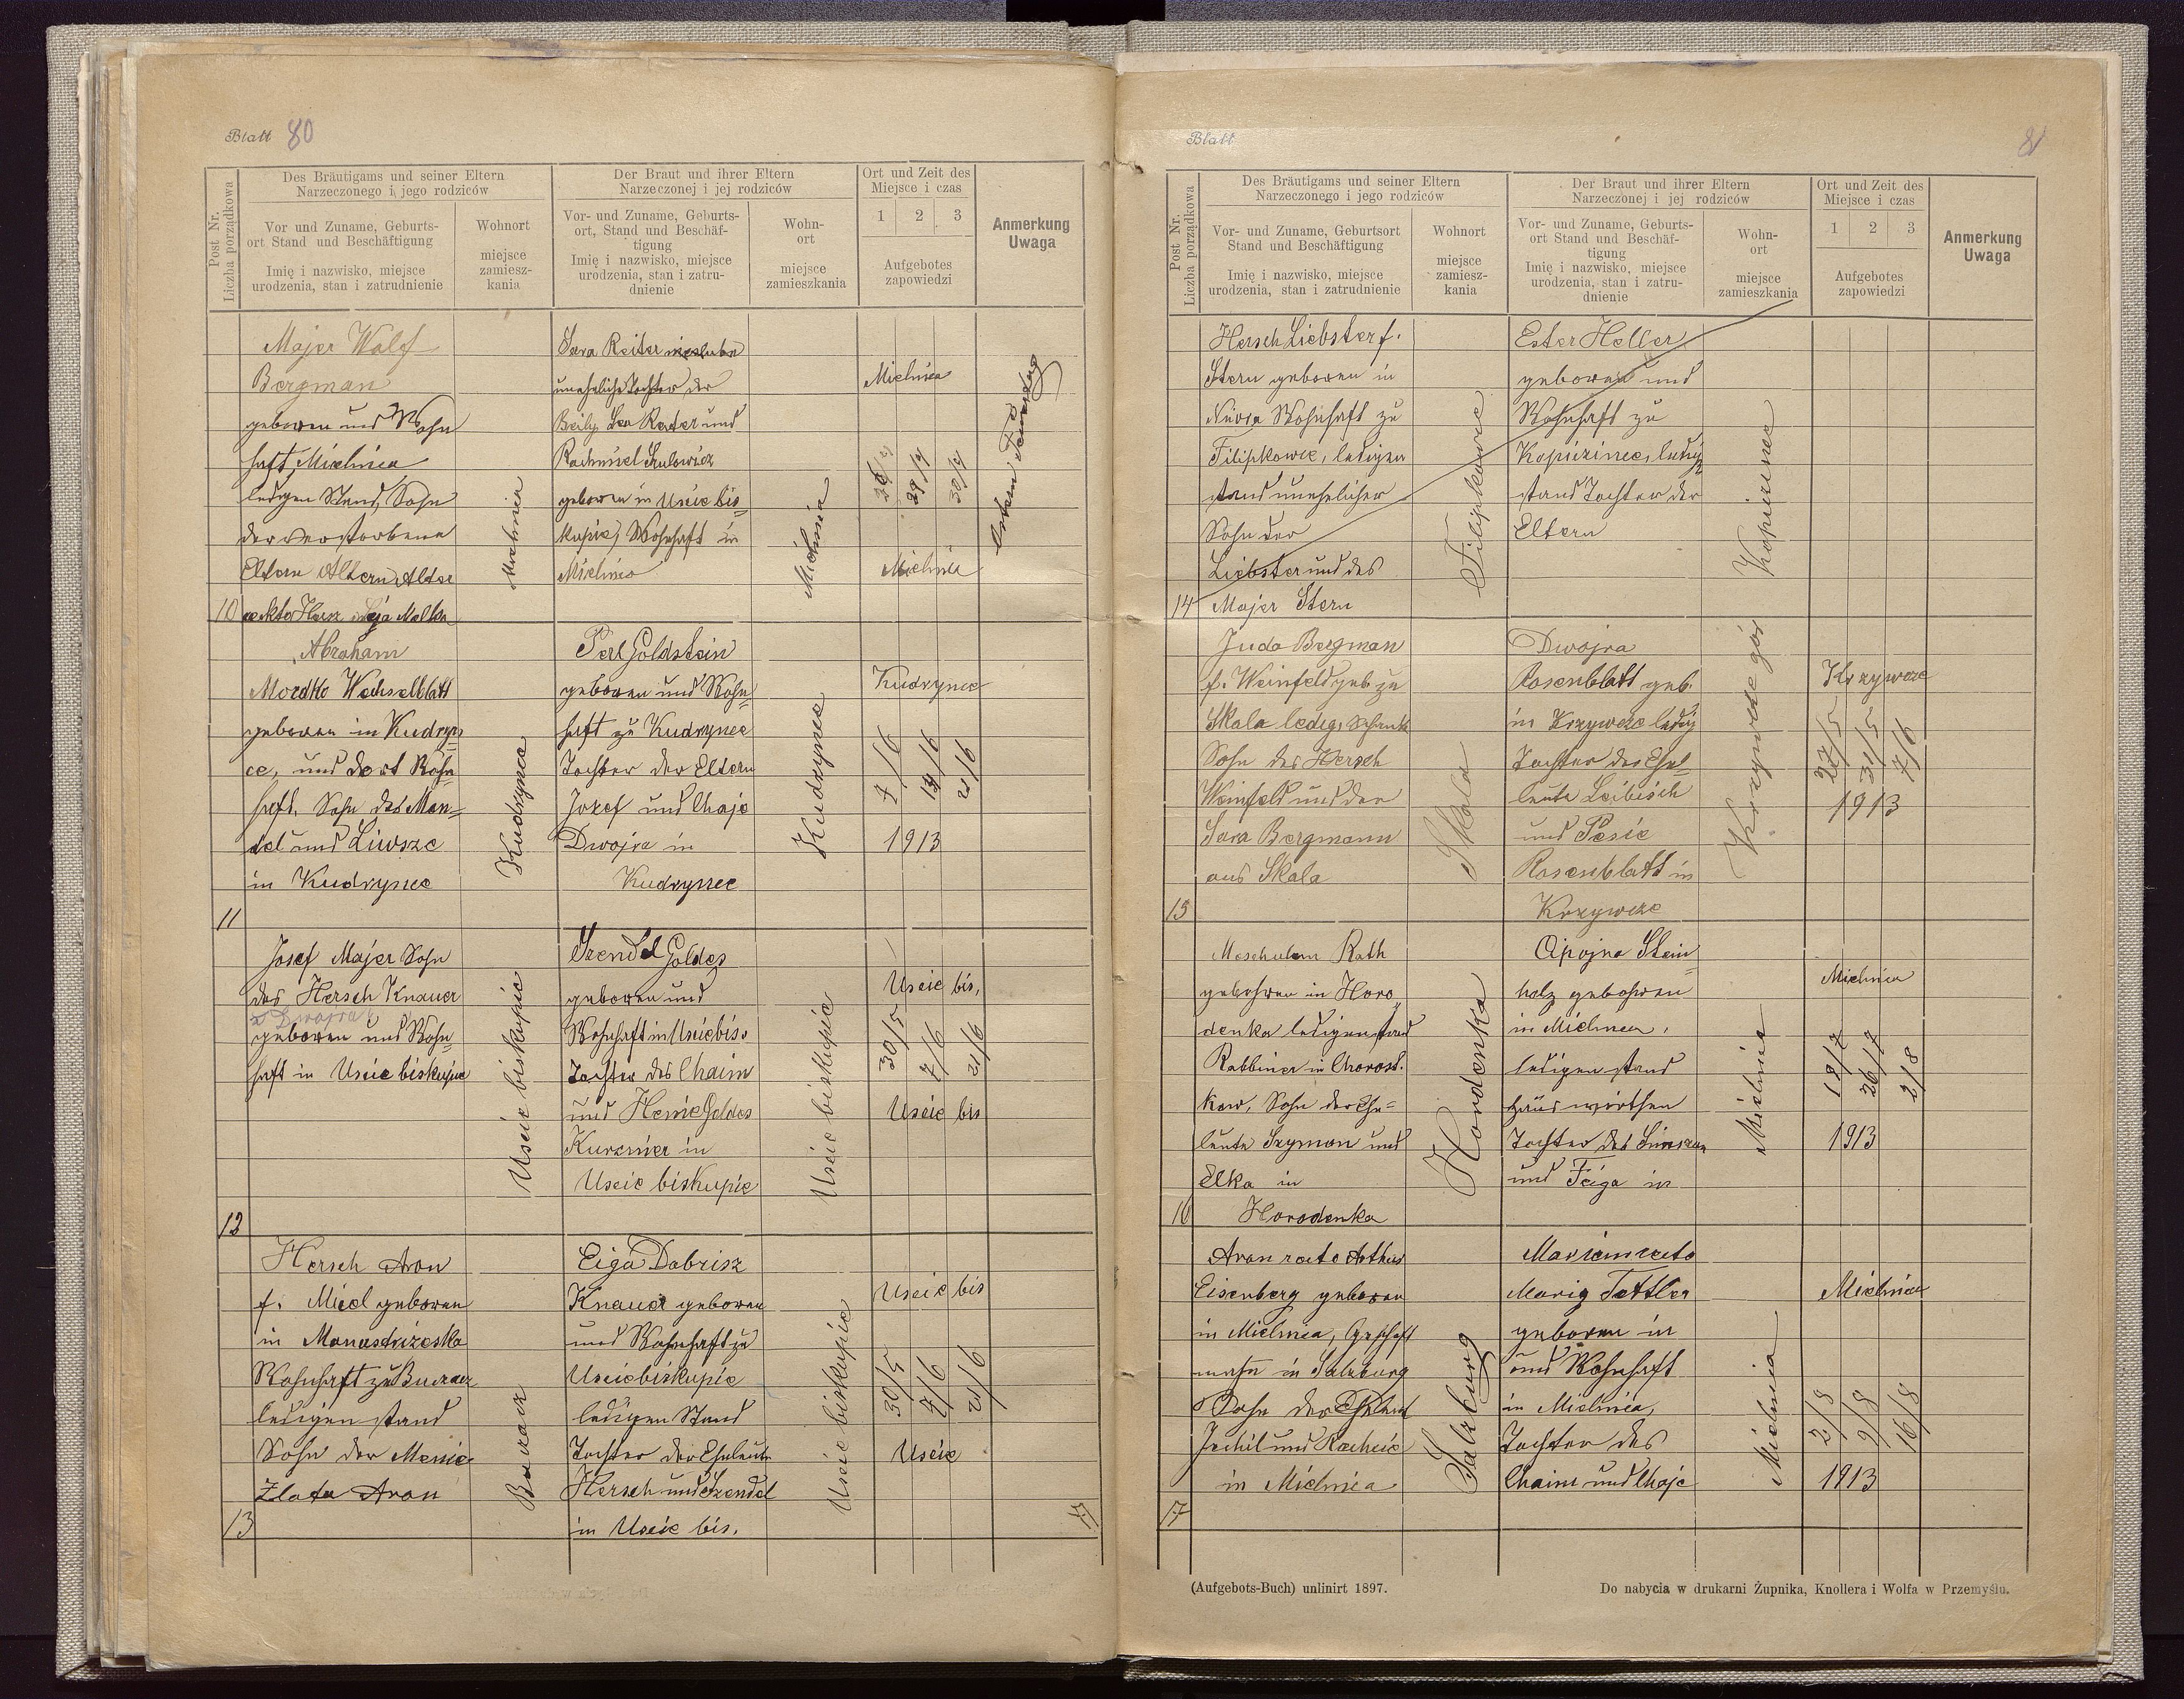 Blatt 80
Post Nr.
Liczba porządkowa
Des Bräutigams und seiner Eltern
Narzeczonego i jego rodziców
Vor und Zuname, Geburts-
ort Stand und Beschäftigung
Imię i nazwisko, miejsce
urodzenia, stan i zatrudnienie
Wohnort
miejsce
zamiesz-
kania
Der Braut und ihrer Eltern
Narzeczonej i jej rodziców
Vor- und Zuname, Geburts-
ort, Stand und Beschäf-
tigung
Imię i nazwisko, miejsce
urodzenia, stan i zatru-
dnienie
Wohn-
ort
miejsce
zamieszkania
Ort und Zeit des
Miejsce i czas
1 2 3
Aufgebotes
zapowiedzi
Anmerkung
Uwaga
10
Majer Wolf
Bergman
geboren und Wohn
haft, Mielnica
ledigen Stand, Sohn
der verstorbene
Eltern Altern Alter
Hersz Malka
Mielnica
Sara Reiter
uneheliche Tochter der
Beily Lea Reiter und
Rachmiel Szulowicz
geboren in Uscie bis=
kupie, Wohnhaft in
Mielnica
Mielnica
Mielnica
29/7 30/7
Mielnica
11
Abraham
Mordko Wechselblatt
geboren in Kudryn
ce, und dort Wohn
haft. Sohn des Men=
del und Liwsze
in Kudrynce
Kudrynce
Perl Goldstein
geboren und Wohn=
haft zu Kudrynce
Tochter der Eltern
Jozef und Chaje
Dwojra in
Kudrynce
Kudrynce
Kudrynce
7/6 14/6 21/6
1913
12
Josef Majer Sohn
des Hersch Knauer
z Dwojra
geboren und Wohn=
haft in Uscie biskupie
Uscie biskupie
Szendel Goldes
geboren und
Wohnhaft in Uscie bis.
Tochter des Chaim
und Henie Goldes
Kurzmer in
Uscie biskupie
Uscie biskupie
Uscie bis,
30/5 7/6 21/6
Uscie bis
13
Hersch Aron
f. Miel geboren
in Monastrizeska
Wohnhaft zu Buczacz
ledigen stand
Sohn der Menie
Zlata Aron
Buczacz
Eiga Dobrisz
Knauer geboren
und Wohnhaft zu
Uscie biskupie
ledigen Stand
Tochter der Eheleute
Hersch und Szendel
in Uscie bis.
Uscie biskupie
Uscie bis
30/5 7/6 21/6
Uscie
17
Blatt 81
Post Nr.
Liczba porządkowa
Des Bräutigams und seiner Eltern
Narzeczonego i jego rodziców
Vor- und Zuname, Geburtsort
Stand und Beschäftigung
Imię i nazwisko, miejsce
urodzenia, stan i zatrudnienie
Wohnort
miejsce
zamiesz-
kania
Der Braut und ihrer Eltern
Narzeczonej i jej rodziców
Vor- und Zuname, Geburts-
ort Stand und Beschäf-
tigung
Imię i nazwisko, miejsce
urodzenia, stan i zatru-
dnienie
Wohn-
ort
miejsce
zamieszkania
Ort und Zeit des
Miejsce i czas
1 2 3
Aufgebotes
zapowiedzi
Anmerkung
Uwaga
14
Hersch Liebster f.
Stern geboren in
Niwra Wohnhaft zu
Filipkowce, ledigen
stand unehelicher
Sohn der
Liebster und des
Majer Stern
Filipkowce
Ester Heller
geboren und
Wohnhaft zu
Kopizince, ledig
stand Tochter der
Eltern
Kopizince
15
Juda Bergman
f. Weinfeld geb. zu
Skala ledig,
Sohn des Hersch
Weinfeld und der
Sara Bergmann
aus Skala
Skala
Dwojra
Rosenblatt geb.
in Krzywcze ledig
Tochter des Ehe=
leute Leibisch
und Pesie
Rosenblatt in
Krzywcze
Krzywcze gór
Krzywcze
27/5 31/5 7/6
1913
16
Meschulem Rath
gebohren in Horo
denka ledigen stand
Rabbiner in Chorost.
kow, Sohn der Ehe=
leute Szymon und
Elka in
Horodenka
Horodenka
Cipojra Stein=
holz gebohren
in Mielnica,
ledigen stand
Tochter des Simson
und Feiga in
Mielnica
Mielnica
18/7 26/7 2/8
1913
17
Aron recte Arthur
Eisenberg geboren
in Mielnica, Geschäft
mann in Salzburg
Sohn der Eheleut
Jechil und Rachcie
in Mielnica
Salzburg
Mariem recte
Marig Tettler
geboren in
und Wohnhaft
in Mielnica,
Tochter des
Chaim und Chaje
Mielnica
Mielnica
2/8 9/8 16/8
1913
(Aufgebots-Buch) unlinirt 1897.
Do nabycia w drukarni Żupnika, Knollera i Wolfa w Przemyślu.